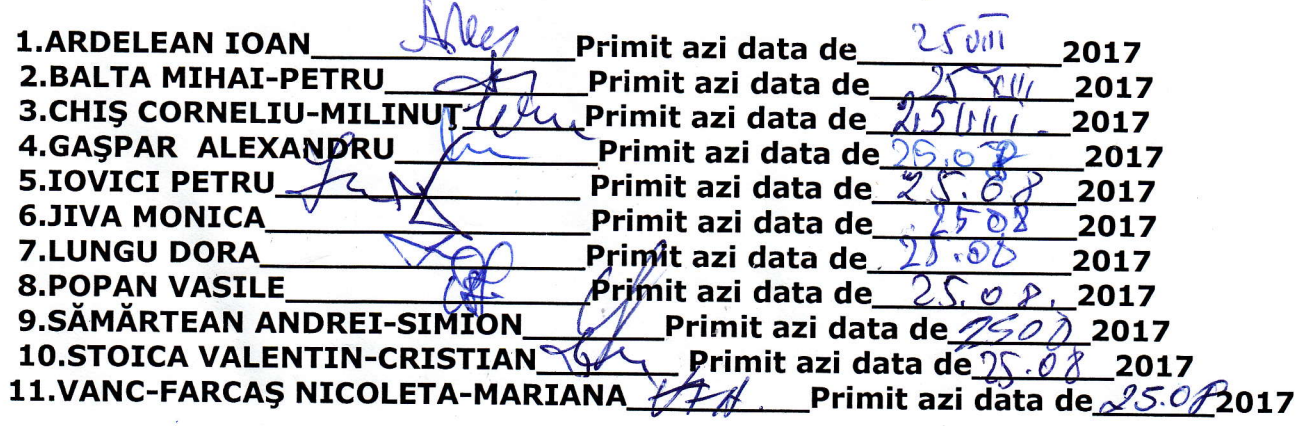 1.ARDELEAN IOAN____________________Primit azi data de 25 VIII 2017
2.BALTA MIHAI-PETRU________________Primit azi data de 25 XIII 2017
3.CHIŞ CORNELIU-MILINUŢ____________Primit azi data de 25 VIII. 2017
4.GAŞPAR ALEXANDRU_______________Primit azi data de 25.08 2017
5.IOVICI PETRU_______________________Primit azi data de 25.08 2017
6.JIVA MONICA_______________________Primit azi data de 25 08 2017
7.LUNGU DORA_______________________Primit azi data de 25.08 2017
8.POPAN VASILE______________________Primit azi data de 25.08. 2017
9.SĂMĂRTEAN ANDREI-SIMION__________Primit azi data de 2508 2017
10.STOICA VALENTIN-CRISTIAN__________Primit azi data de 25.08 2017
11.VANC-FARCAŞ NICOLETA-MARIANA____________Primit azi data de 25.08 2017